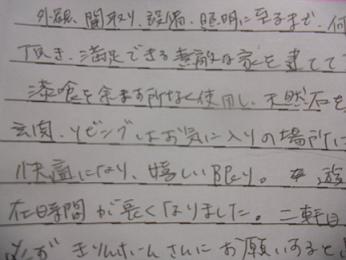 外観、間取り、設備、照明に至るまで、何
頂き、満足できる素敵な家を建てて
漆喰を余す所なく使用し、天然石を
玄関、リビングはお気に入りの場所に
快適になり、嬉しい限り。
在時間が長くなりました。二軒目
必ず きりんホームさんにお願いすると